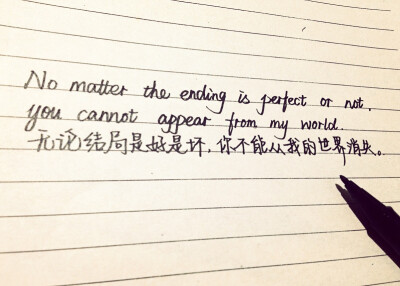 No matter the ending is perfect or not,
you cannot appear from my world.
无论结局是好是坏，你不能从我的世界消失。